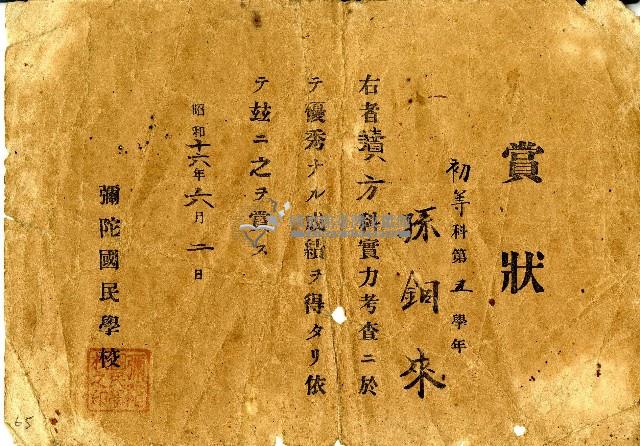 賞狀
初等科第五學年
孫銅來
右者讀方科實力考查ニ於
テ優秀ナル成績ヲ得タリ依
テ玆ニ之ヲ賞ス
昭和十六年六月二日
彌陀國民學校
65